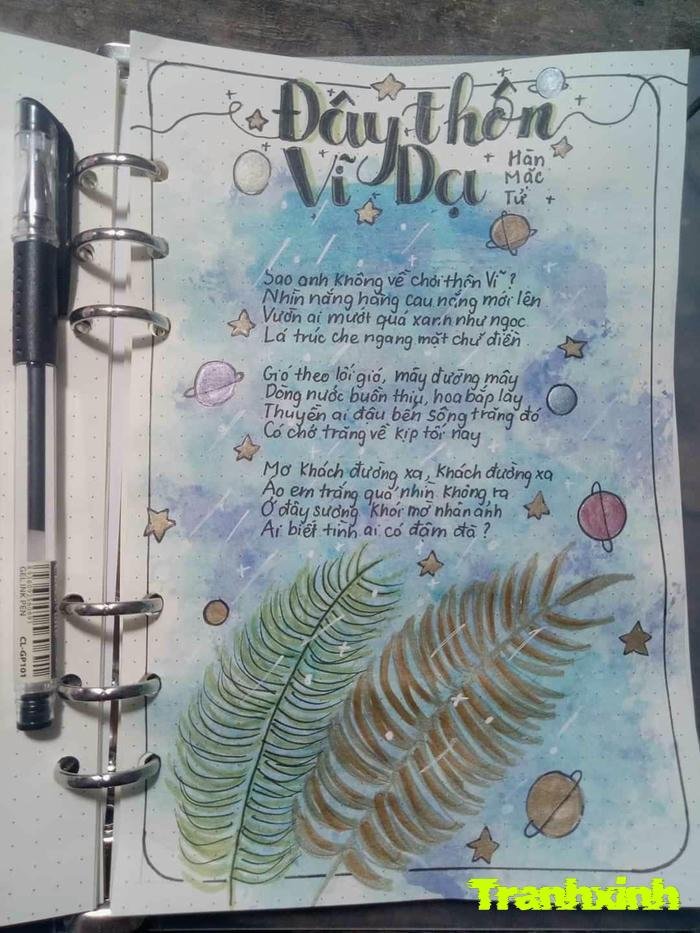 Đây thôn
Vĩ Dạ
Hàn
Mặc
Tử
Sao anh không về chơi thôn Vĩ ?
Nhìn nắng hàng cau nắng mới lên
Vườn ai mướt quá xanh như ngọc
Lá trúc che ngang mặt chữ điền
Gió theo lối gió, mây đường mây
Dòng nước buồn thiu, hoa bắp lay
Thuyền ai đậu bến sông trăng đó
Có chở trăng về kịp tối nay
Mơ khách đường xa, khách đường xa
Áo em trắng quá nhìn không ra
Ở đây sương khói mờ nhân ảnh
Ai biết tình ai có đậm đà ?
GEL INK PEN
CL-GP101
Tranhxinh